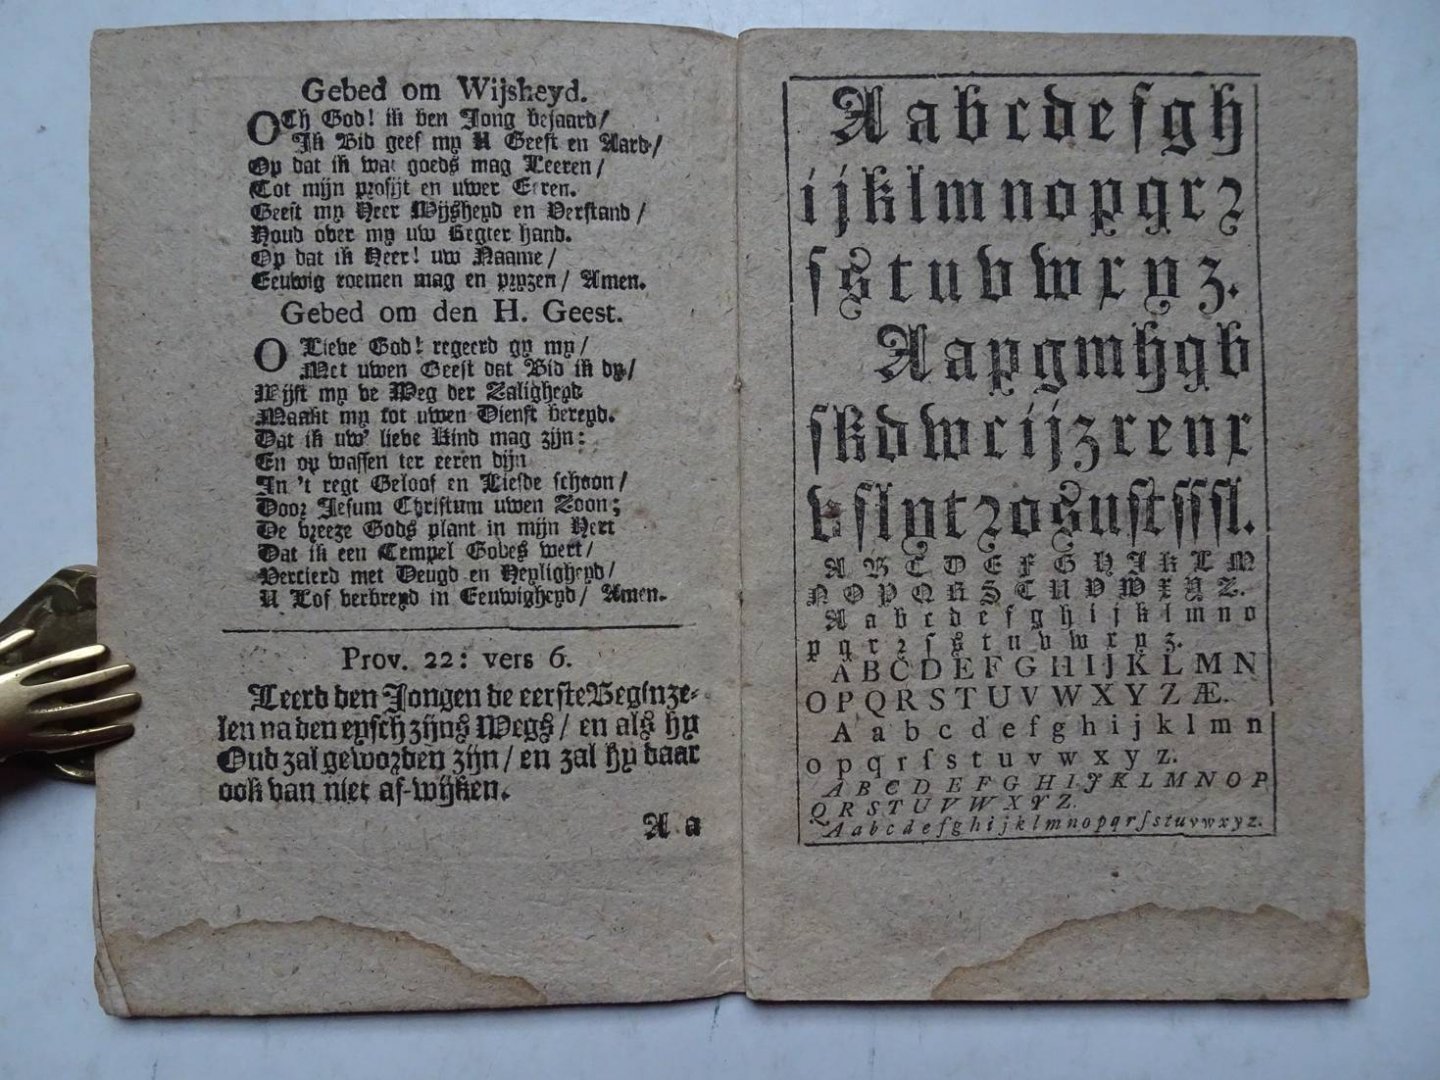 Gebed om Wijsheyd.
OCh God! ik ben Jong bejaard/
Ik Bid geef my U Geest en Aard/
Op dat ik wat goeds mag Leeren/
Tot mijn profijt en uwer Eeren.
Geeft my Heer Wijsheyd en Verstand/
Houd over my uw Regter hand.
Op dat ik Heer! uw Naame/
Eeuwig roemen mag en pryzen/ Amen.
Gebed om den H. Geest.
O Lieve God! regeerd gy my/
Met uwen Geest dat Bid ik dy/
Wijst my de Weg der Zaligheyd
Maakt my tot uwen Dienst bereyd.
Dat ik uw' lieve Kind mag zijn:
En op wassen ter eeren dijn
In 't regt Geloof en Liefde schoon/
Door Jesum Christum uwen Zoon;
De vreeze Gods plant in mijn Hert
Dat ik een Tempel Godes wert/
Vercierd met Deugd en Heyligheyd/
U Lof verbreyd in Eeuwigheyd/ Amen.
Prov. 22: vers 6.
Leerd den Jongen de eerste Beginze-
len na den eysch zijns Wegs/ en als hy
Oud zal geworden zijn/ en zal hy daar
ook van niet af-wijken.
A a
A a b c d e f g h
i j k l m n o p q r ꝛ
ſ s t u v w x y z.
A a p g m h q b
f k d w c i j z r e n x
v ſl y t ꝛ o s u ſt ſſ ſl.
A B C D E F G H I K L M
N O P Q R S T U V W X Y Z.
A a b c d e f g h i j k l m n o
p q r ꝛ ſ s t u v w x y z.
A B C D E F G H I J K L M N
O P Q R S T U V W X Y Z Æ.
A a b c d e f g h i j k l m n
o p q r ſ s t u v w x y z.
A B C D E F G H I J K L M N O P
Q R S T U V W X Y Z.
A a b c d e f g h i j k l m n o p q r ſ s t u v w x y z.